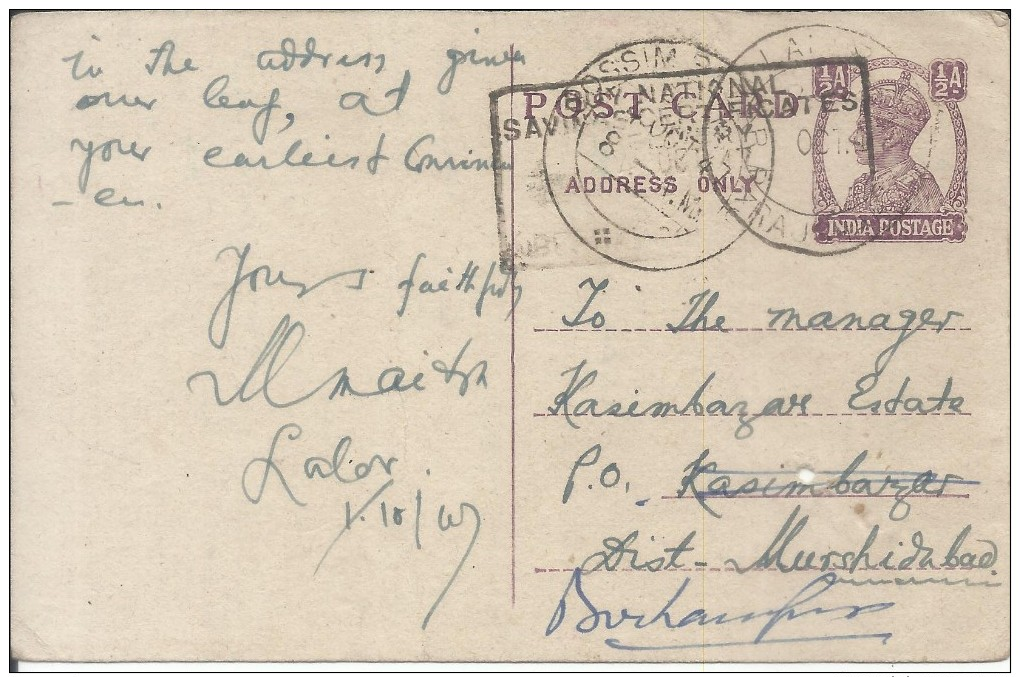 in the address given
over leaf, at
your earliest Convinien
-ce.
Yours faithfully
Maitra
Lalor.
1/10/47
POST CARD
ADDRESS ONLY
½A ½A
INDIA POSTAGE
NATIONAL
SAVINGS CERTIFICATES
COSSIM
OCT
To The manager
Kasimbazar Estate
P.O. Kasimbazar
Dist- Murshidabad
Berhampur